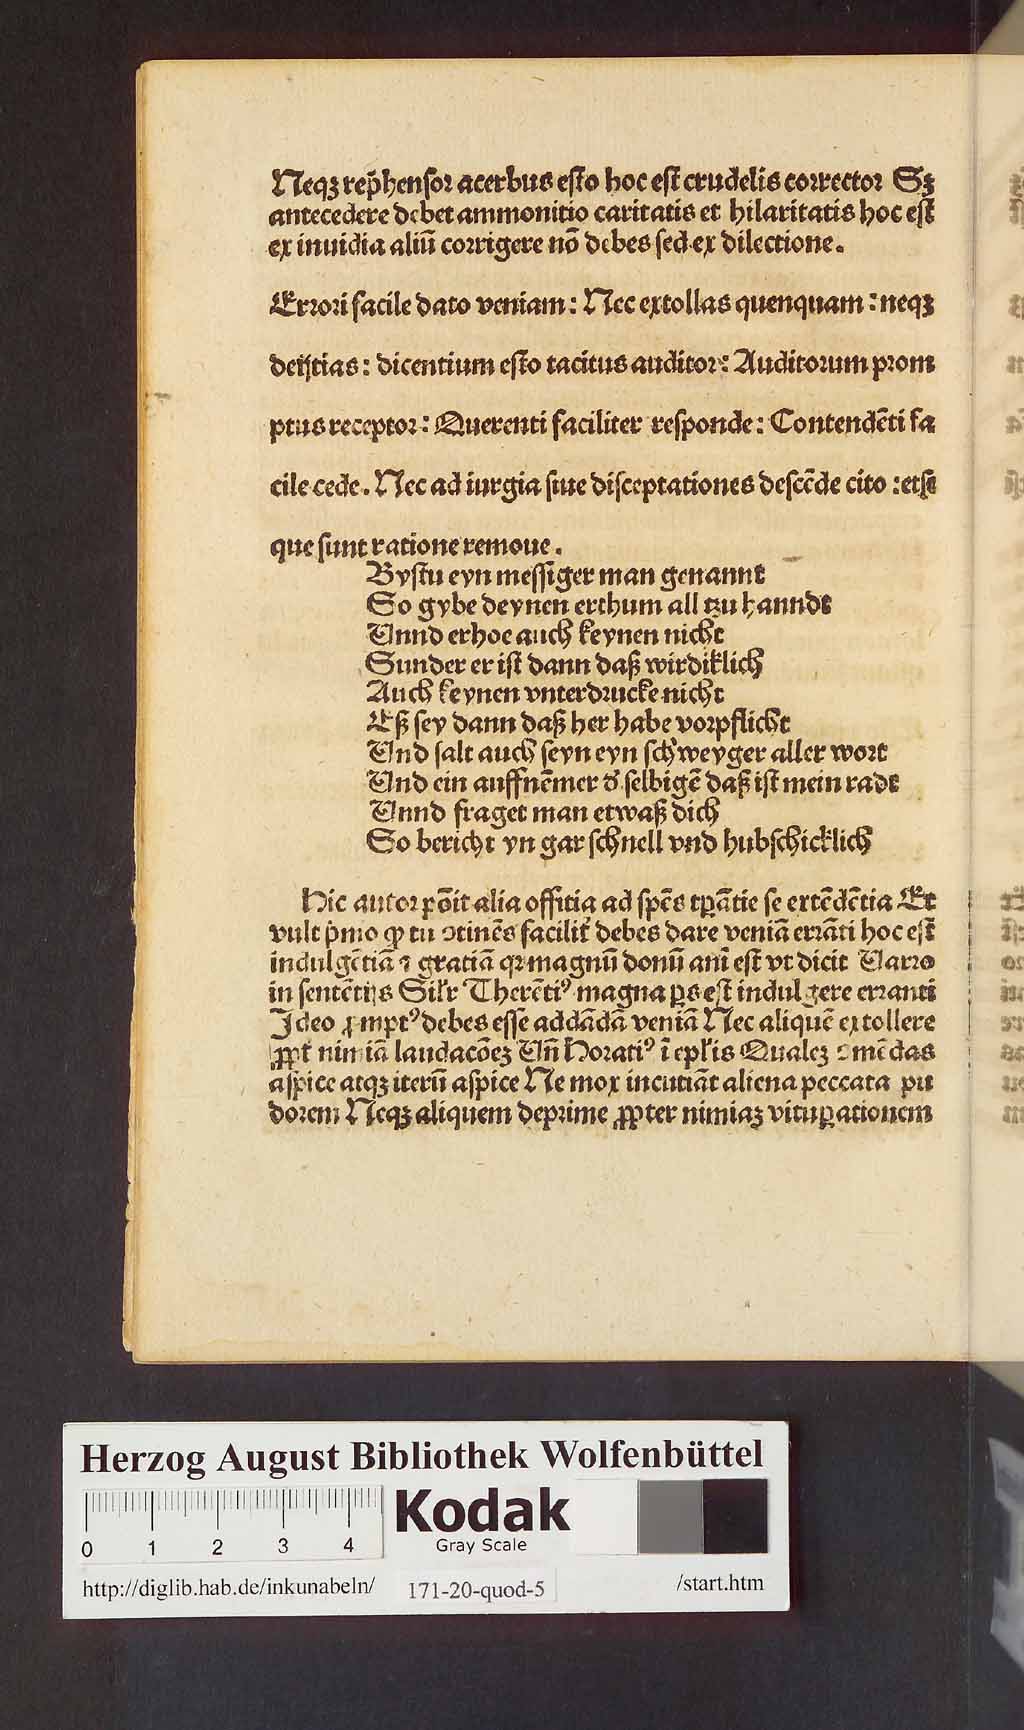 Neqꝫ rep̄henſor acerbus eſto hoc eſt crudelis corrector Sꝫ
antecedere debet ammonitio caritatis et hilaritatis hoc eſt
ex inuidia aliū corrigere nō debes ſed ex dilectione.
Errori facile dato veniam: Nec extollas quenquam: neqꝫ
deijtias: dicentium eſto tacitus auditor: Auditorum prom
ptus receptor: Querenti faciliter reſponde: Contendēti fa
cile cede. Nec ad iurgia ſiue diſceptationes deſcēde cito: etſi
que ſunt ratione remoue.
Byſtu eyn meſſiger man genannt
So gybe deynen erthum all tzu hanndt
Vnnd erhoe auch keynen nicht
Sunder er iſt dann daß wirdiklich
Auch keynen vnterdrucke nicht
Eß ſey dann daß her habe vorpflicht
Vnd ſalt auch ſeyn eyn ſchweyger aller wort
Vnd ein auffnēmer d̛ ſelbigē daß iſt mein radt
Vnnd fraget man etwaß dich
So bericht yn gar ſchnell vnd hubſchicklich
Hic autor pōit alia offitia ad ſpēs tꝑātie ſe extēdētia Et
vult p̄mo ꝙ tu ꝯtinēs facilit̛ debes dare veniā errāti hoc eſt
indulgētiā ⁊ gratiā qꝛ magnū donū ani̅ eſt vt dicit Varro
in ſentētijs Sil̛r Therētiꝰ magna ꝑs eſt indulgere erranti
Ideo ꝓmptꝰ debes eſſe ad dādā veniā Nec aliquē extollere
ꝓpt̛ nimiā laudacōeꝫ Vn̄ Horatiꝰ ī epl̛is Qualeꝫ ꝯmēdas
aſpice atqꝫ iterū aſpice Ne mox incutiāt aliena peccata pu
dorem Neqꝫ aliquem deprime ꝓpter nimiaꝫ vituꝑationem
Herzog August Bibliothek Wolfenbüttel
0 1 2 3 4
Kodak
Gray Scale
http://diglib.hab.de/inkunabeln/ 171-20-quod-5 /start.htm